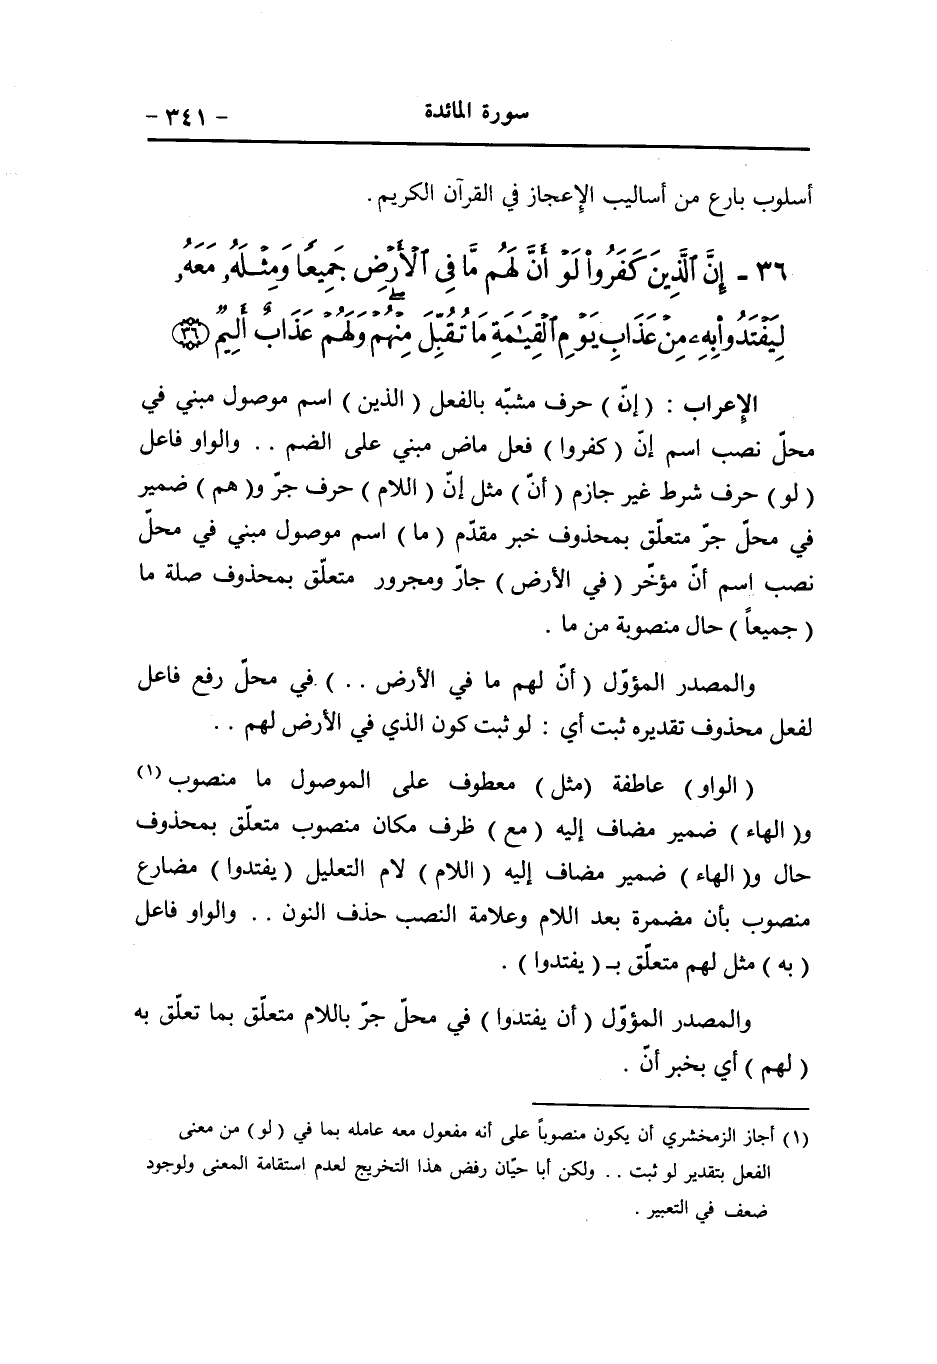 سورة المائدة - ٣٤١ -
أسلوب بارع من أساليب الإعجاز في القرآن الكريم .
٣٦ - إِنَّ ٱلَّذِينَ كَفَرُوا۟ لَوْ أَنَّ لَهُم مَّا فِى ٱلْأَرْضِ جَمِيعًا وَمِثْلَهُۥ مَعَهُۥ
لِيَفْتَدُوا۟ بِهِۦ مِنْ عَذَابِ يَوْمِ ٱلْقِيَـٰمَةِ مَا تُقُبِّلَ مِنْهُمْ ۖ وَلَهُمْ عَذَابٌ أَلِيمٌ ﴿٣٦﴾
الإعراب : ( إنّ ) حرف مشبّه بالفعل ( الذين ) اسم موصول مبني في
محلّ نصب اسم إنّ ( كفروا ) فعل ماض مبني على الضم . . والواو فاعل
( لو ) حرف شرط غير جازم ( أنّ ) مثل إنّ ( اللام ) حرف جرّ و( هم ) ضمير
في محلّ جرّ متعلّق بمحذوف خبر مقدّم ( ما ) اسم موصول مبني في محلّ
نصب اسم أنّ مؤخّر ( في الأرض ) جارّ ومجرور متعلّق بمحذوف صلة ما
( جميعاً ) حال منصوبة من ما .
والمصدر المؤوّل ( أنّ لهم ما في الأرض . . ) في محلّ رفع فاعل
لفعل محذوف تقديره ثبت أي : لو ثبت كون الذي في الأرض لهم . .
( الواو ) عاطفة ( مثل ) معطوف على الموصول ما منصوب (١)
و( الهاء ) ضمير مضاف إليه ( مع ) ظرف مكان منصوب متعلّق بمحذوف
حال و( الهاء ) ضمير مضاف إليه ( اللام ) لام التعليل ( يفتدوا ) مضارع
منصوب بأن مضمرة بعد اللام وعلامة النصب حذف النون . . والواو فاعل
( به ) مثل لهم متعلّق بـ ( يفتدوا ) .
والمصدر المؤوّل ( أن يفتدوا ) في محلّ جرّ باللام متعلّق بما تعلّق به
( لهم ) أي بخبر أنّ .
(١) أجاز الزمخشري أن يكون منصوباً على أنه مفعول معه عامله بما في ( لو ) من معنى
الفعل بتقدير لو ثبت . . ولكن أبا حيّان رفض هذا التخريج لعدم استقامة المعنى ولوجود
ضعف في التعبير .